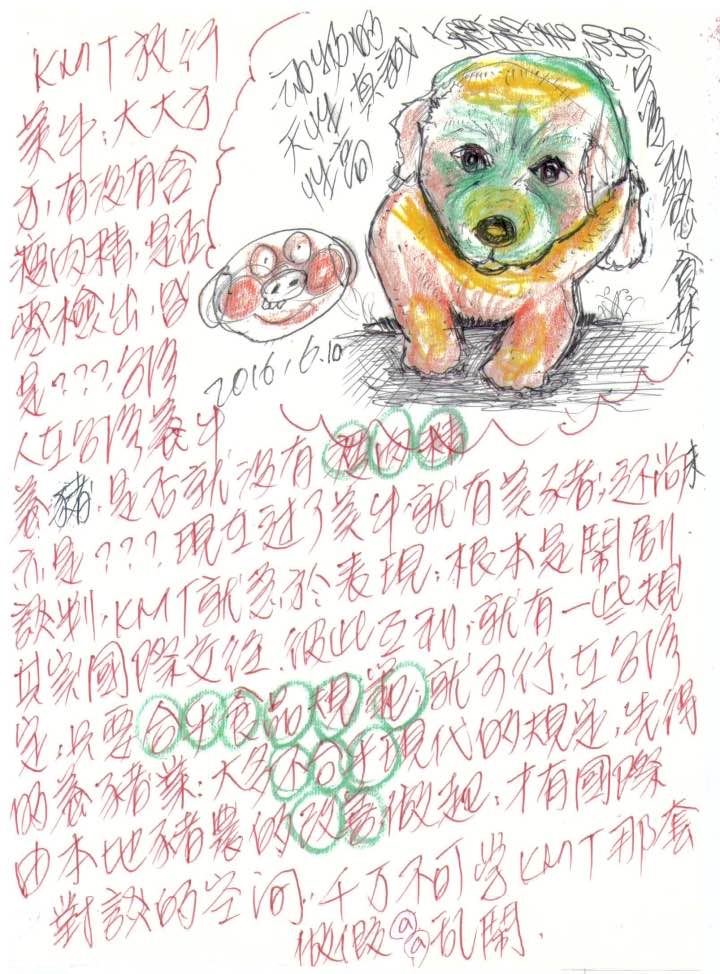 KMT放行
美牛；大大方
方，有沒有含
瘦肉精，是否
要檢出，因
是？？？台灣
人在台灣養牛
養豬，是否就沒有瘦肉精
亦是？？？現在過了美牛，就有美豬；还尚未
談判，KMT就急於表現；根本是鬧剧
其實國際交往，彼此互利，就有一些規
定；只要合乎食品規範，就可行，在台灣
的養豬業；大多不合乎現代的規定，先得
由本地豬農的改善做起；才有國際
對談的空间；千万不可学KMT那套
做假乱鬧．
动物的
天性，真誠
性高
2016.6.10